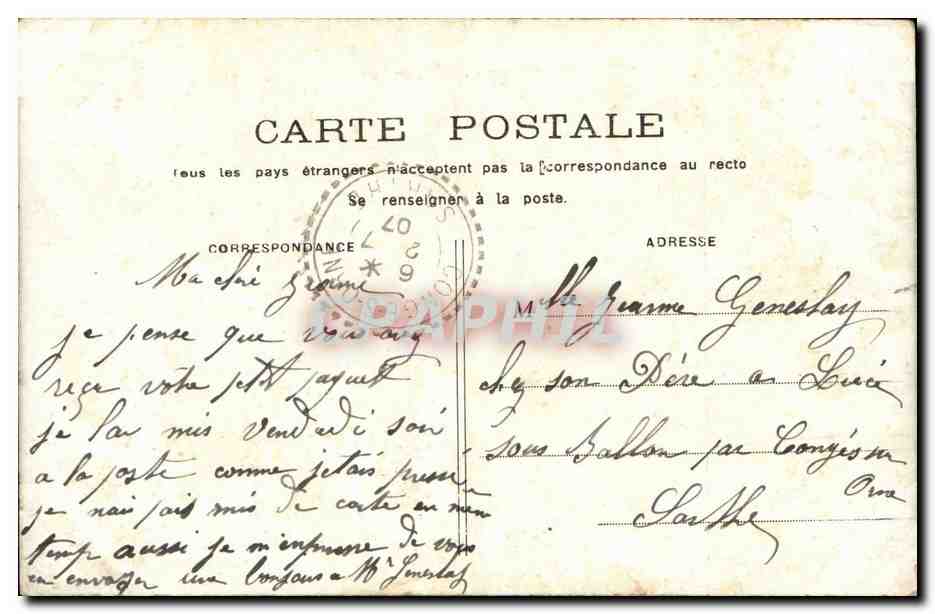 CARTE POSTALE
Tous les pays étrangers n'acceptent pas la correspondance au recto
Se renseigner à la poste.
CORRESPONDANCE
ADRESSE
Ma chère Jeanne
je pense que vous avez
reçu votre ptit paquet
je lai mis Vendredi soir
a la poste comme jetais pressé
je nais pas mis de carte en meme
temp aussi je m'enpresse de vous
en envoyer une bonjours a Mr Geneslay
Mlle Jeanne Geneslay
chez son Père a Lucé
sous Ballon par Congé sur
Orne
Sarthe
6 2
7
07
DELCAMPHIL